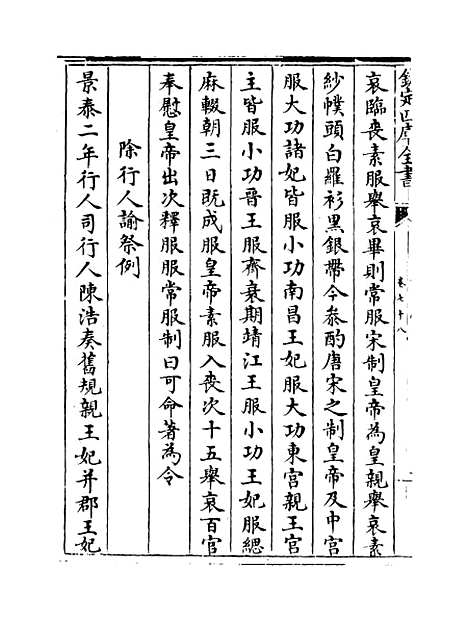 欽定四庫全書
卷七十八
哀臨喪素服舉哀畢則常服宋制皇帝為皇親舉哀素
紗幞頭白羅衫黑銀帶今叅酌唐宋之制皇帝及中宮
服大功諸妃皆服小功南昌王妃服大功東宮親王宮
主皆服小功晉王服齊衰期靖江王服小功王妃服緦
麻輟朝三日既成服皇帝素服入喪次十五舉哀百官
奉慰皇帝出次釋服服常服制曰可命著為令
除行人諭祭例
景泰二年行人司行人陳浩奏舊規親王妃并郡王妃